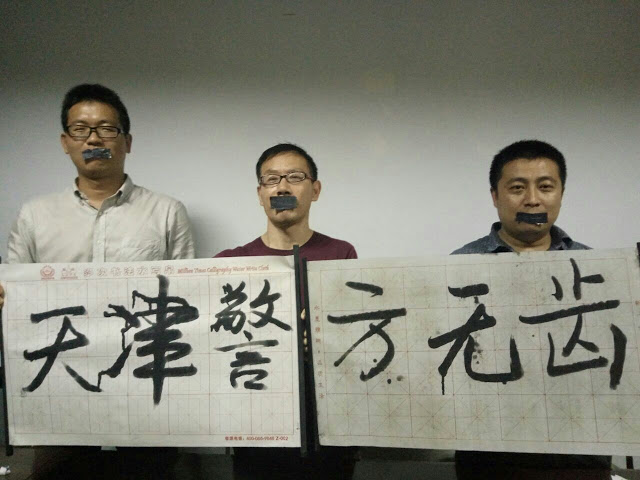 Million Times Calligraphy Water Write Cloth
天津警方无齿